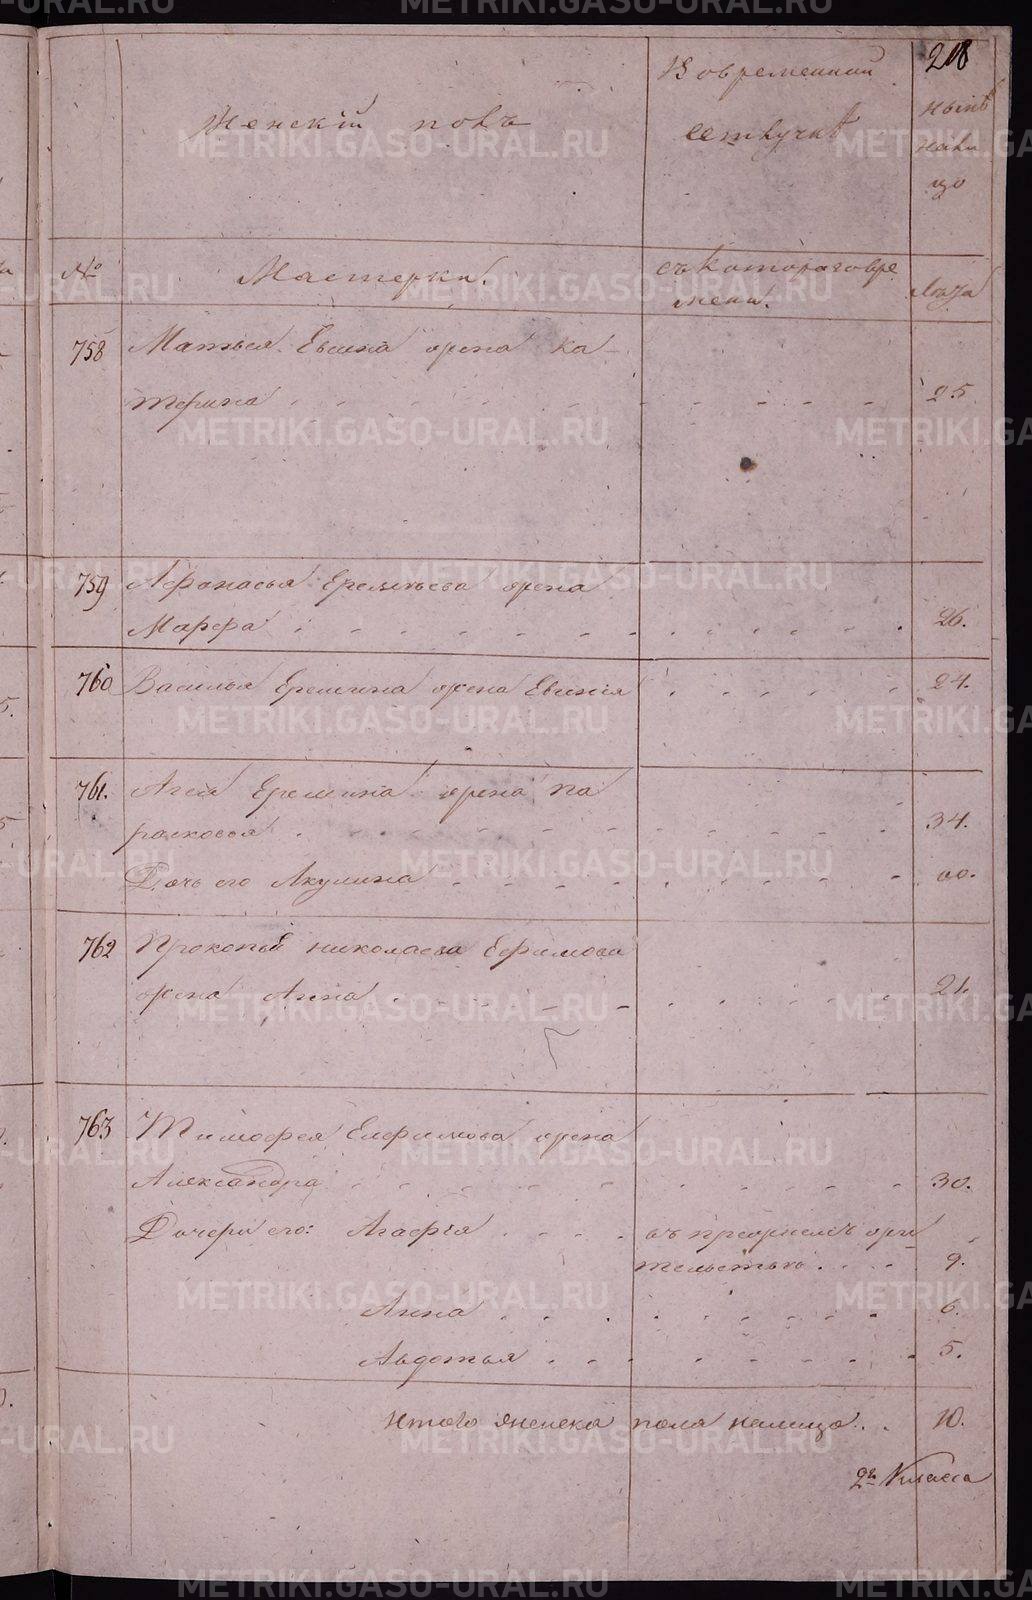 218
Женскій полъ
Во временной отлучкѣ
нынѣ на ли цо
№
Мастерки.
съ котораго вре мени.
Лѣта
758 Матвея Евсина жена Ка-
терина 25
759 Афанасья Еремеева жена
Марфа 26.
760 Василья Еремина жена Евгенія 24.
761. Агея Еремина жена Па
расковья 34.
Дочь его Акулина 00.
762 Прокопья Николаева Ефимова
жена Анна 21.
763 Тимофея Ефимова жена
Александра 30.
Дочери его: Агафія въ прежнемъ жи
тельствѣ 9.
Анна 6.
Авдотья 5.
Итого женска пола налицо 10.
2го Класса
METRIKI.GASO-URAL.RU